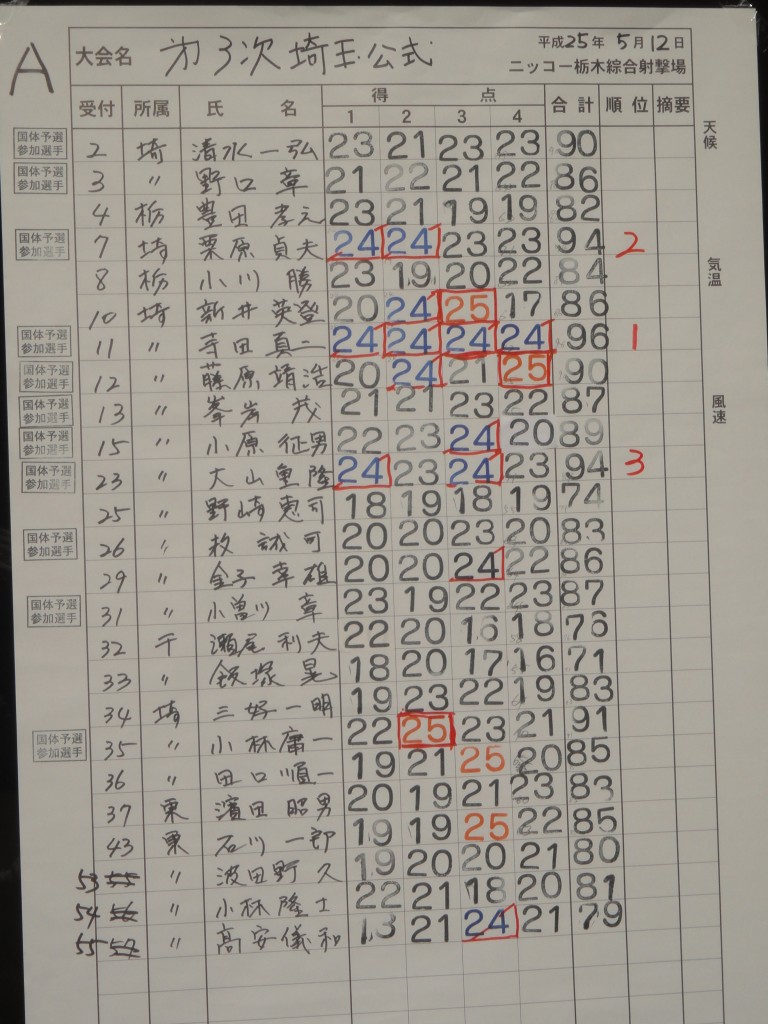 A
大会名 オ3次埼玉公式 平成25年 5月12日
ニッコー栃木綜合射撃場
受付 所属 氏名 得点 合計 順位 摘要
1 2 3 4
天候
気温
風速
国体予選参加選手 2 埼 清水一弘 23 21 23 23 90
国体予選参加選手 3 〃 野口章 21 22 21 22 86
4 栃 豊田孝元 23 21 19 19 82
国体予選参加選手 7 埼 栗原貞夫 24 24 23 23 94 2
8 栃 小川勝 23 19 20 22 84
10 埼 新井英登 20 24 25 17 86
国体予選参加選手 11 〃 寺田真二 24 24 24 24 96 1
国体予選参加選手 12 〃 藤原靖浩 20 24 21 25 90
国体予選参加選手 13 〃 峯岸茂 21 21 23 22 87
国体予選参加選手 15 〃 小原征男 22 23 24 20 89
国体予選参加選手 23 〃 大山重隆 24 23 24 23 94 3
25 〃 野崎恵司 18 19 18 19 74
国体予選参加選手 26 〃 枚誠可 20 20 23 20 83
29 〃 金子幸雄 20 20 24 22 86
国体予選参加選手 31 〃 小曽川章 23 19 22 23 87
32 千 瀬尾利夫 22 20 16 18 76
33 〃 飯塚晃 18 20 17 16 71
34 埼 三好一明 19 23 22 19 83
国体予選参加選手 35 〃 小林庸一 22 25 23 21 91
36 〃 田口順一 19 21 25 20 85
37 東 濱田昭男 20 19 21 23 83
43 東 石川一郎 19 19 25 22 85
53 55 〃 波田野久 19 20 20 21 80
54 56 〃 小林隆士 22 21 18 20 81
55 57 〃 高安儀和 13 21 24 21 79